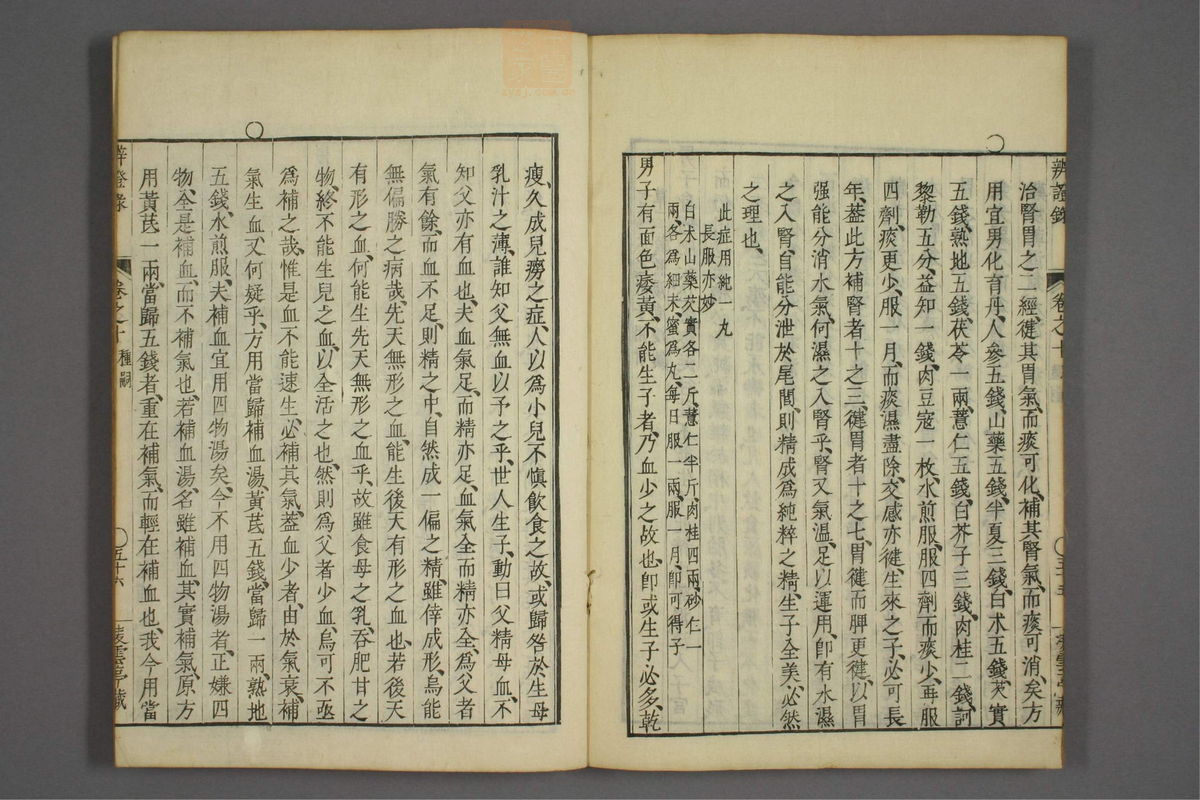 辨證錄
治腎胃之二經健其胃氣而痰可化補其腎氣而痰可消矣方
用宜男化育丹人參五錢山藥五錢半夏三錢白术五錢芡實
五錢熟地五錢茯苓一兩薏仁五錢白芥子三錢肉桂二錢訶
黎勒五分益知一錢肉豆寇一枚水煎服服四劑而痰少再服
四劑痰更少服一月而痰濕盡除交感亦健生來之子必可長
年葢此方補腎者十之三健胃者十之七胃健而脾更健以胃
强能分消水氣何濕之入腎乎腎又氣温足以運用卽有水濕
之入腎自能分泄於尾閭則精成爲純粹之精生子全美必然
之理也
此症用純一丸
長服亦妙
白术山藥芡實各二斤薏仁半斤肉桂四兩砂仁一
兩各爲細末蜜爲丸每日服一兩服一月卽可得子
男子有面色痿黃不能生子者乃血少之故也卽或生子必多乾
瘦久成兒癆之症人以爲小兒不愼飮食之故或歸咎於生母
乳汁之薄誰知父無血以予之乎世人生子動曰父精母血不
知父亦有血也夫血氣足而精亦足血氣全而精亦全爲父者
氣有餘而血不足則精之中自然成一偏之精雖倖成形烏能
無偏勝之病哉先天無形之血能生後天有形之血也若後天
有形之血何能生先天無形之血乎故雖食母之乳吞肥甘之
物終不能生兒之血以全活之也然則爲父者少血烏可不亟
爲補之哉惟是血不能速生必補其氣葢血少者由於氣衰補
氣生血又何疑乎方用當歸補血湯黃茋五錢當歸一兩熟地
五錢水煎服夫補血宜用四物湯矣今不用四物湯者正嫌四
物全是補血而不補氣也若補血湯名雖補血其實補氣原方
用黃茋一兩當歸五錢者重在補氣而輕在補血也我今用當
卷之十 種嗣
五十六